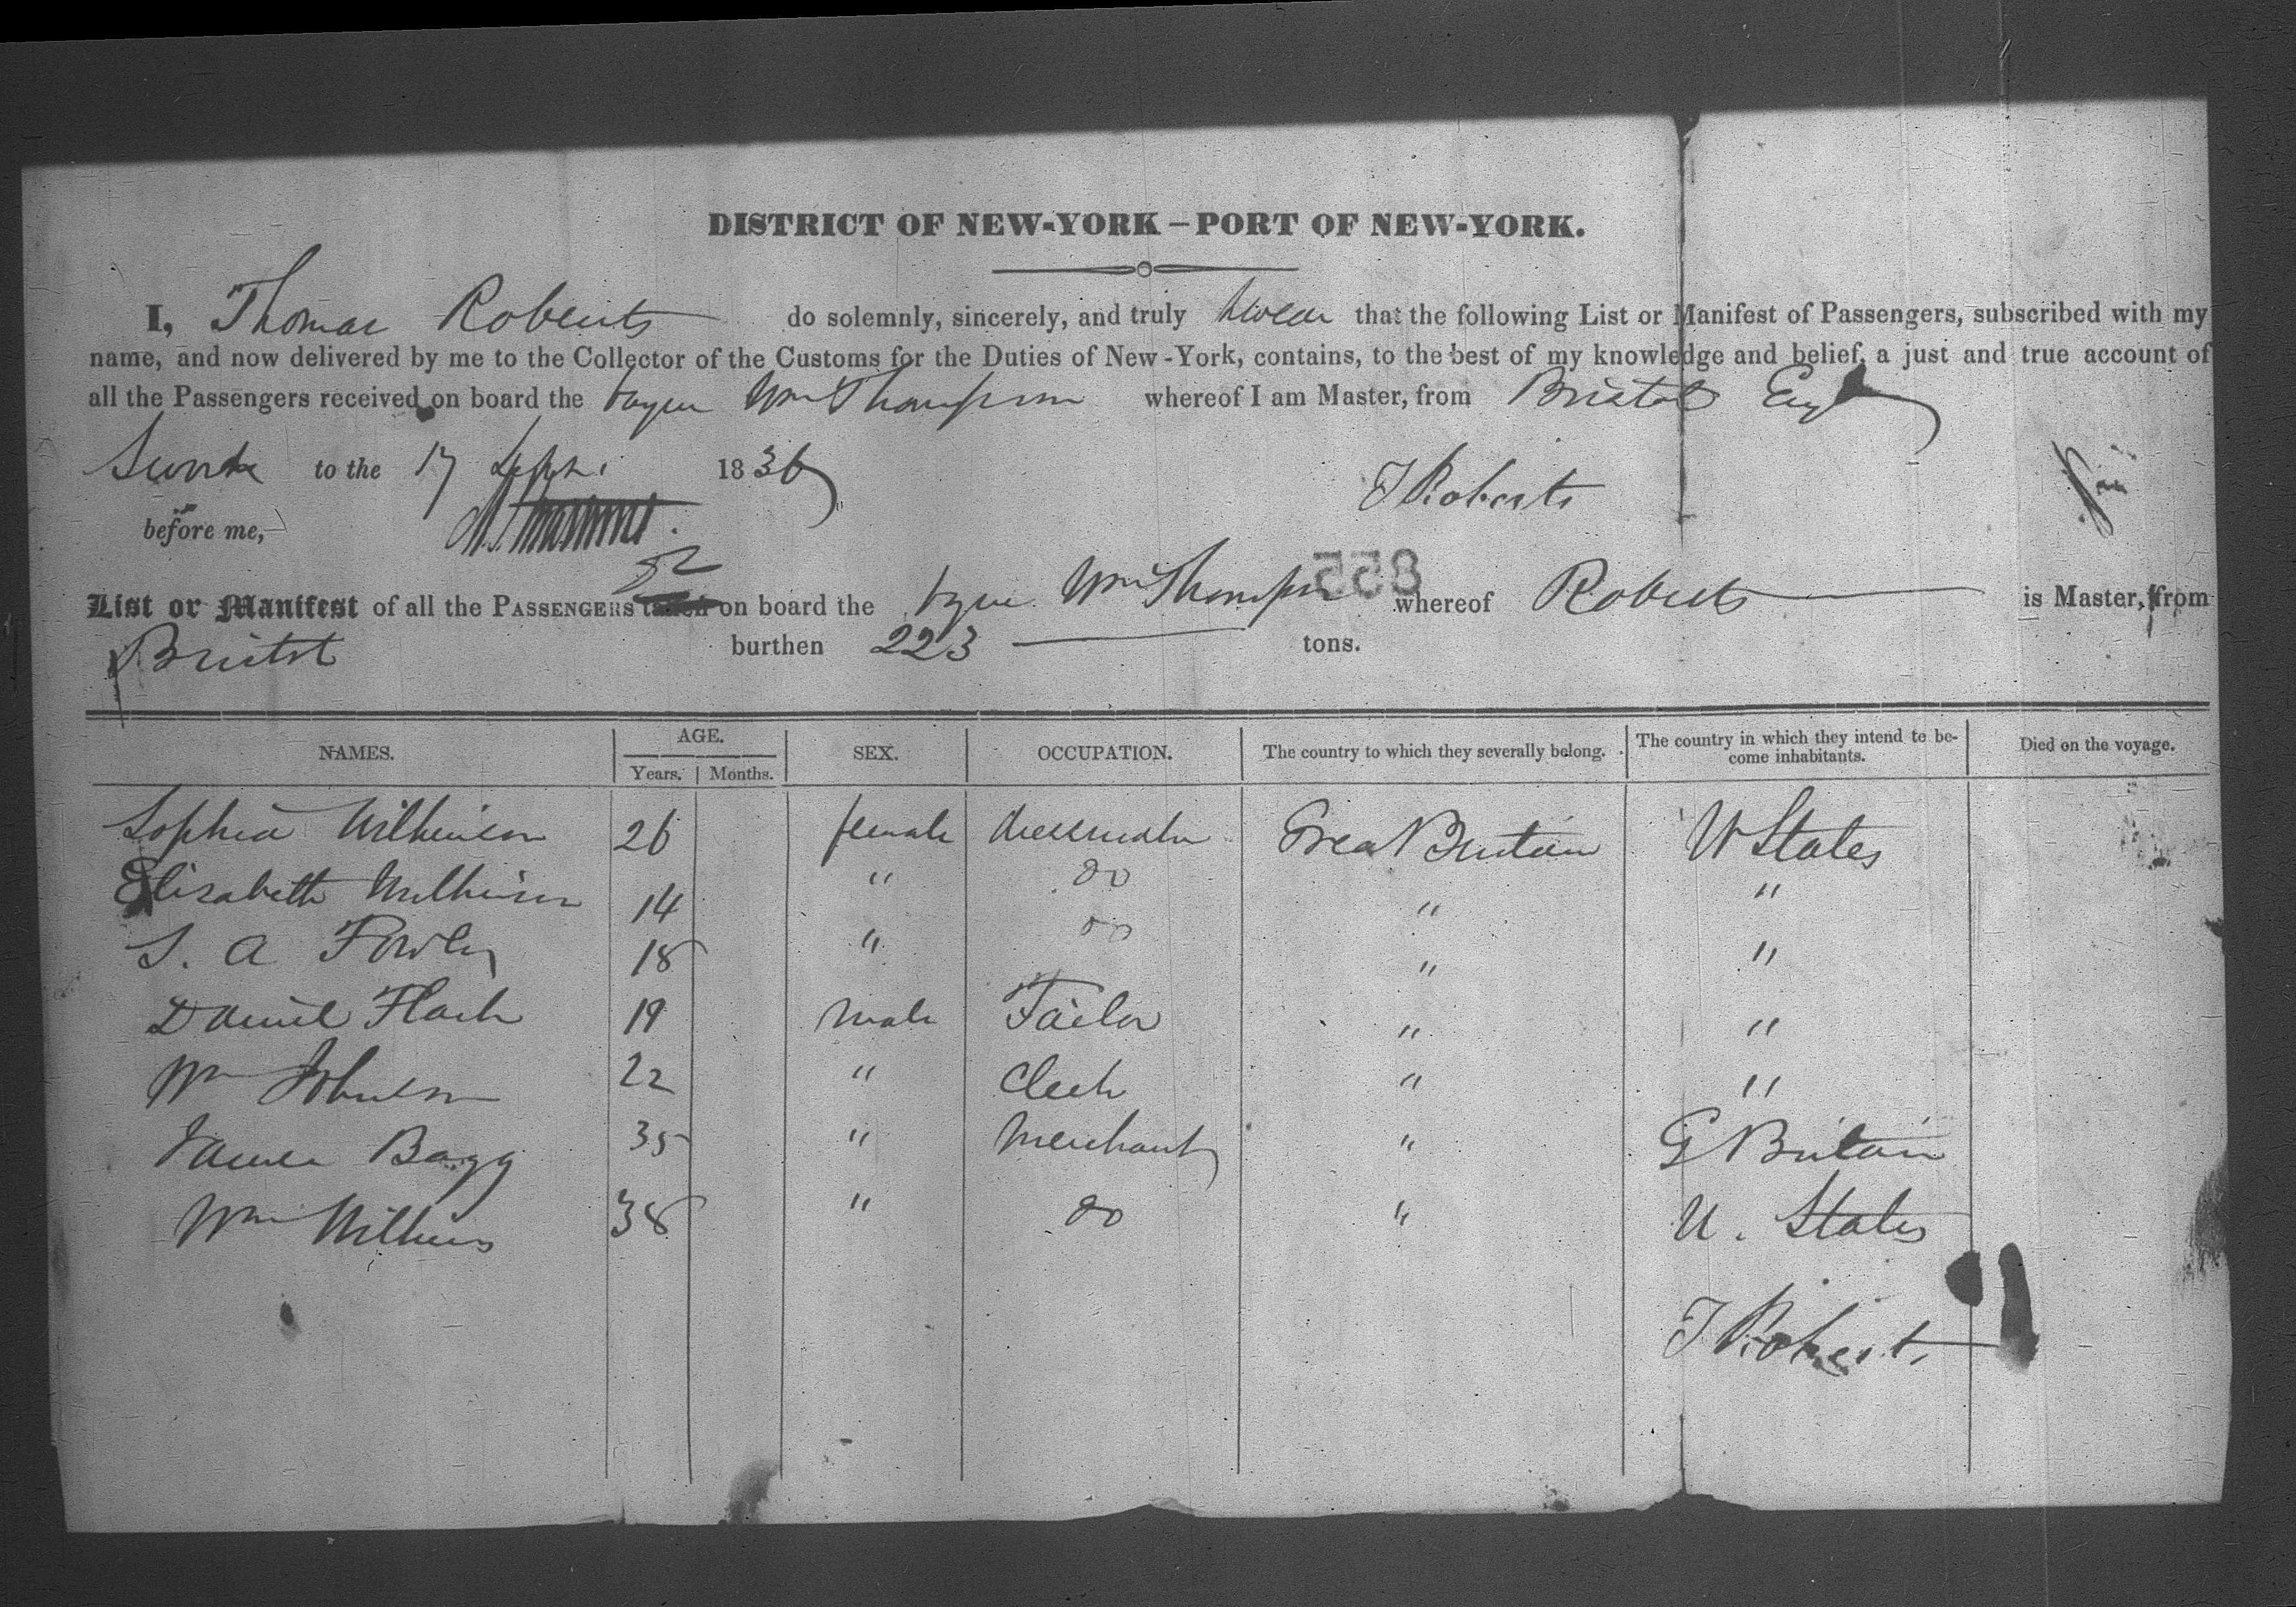 DISTRICT OF NEW-YORK – PORT OF NEW-YORK.
I, Thomas Roberts do solemnly, sincerely, and truly swear that the following List or Manifest of Passengers, subscribed with my
name, and now delivered by me to the Collector of the Customs for the Duties of New-York, contains, to the best of my knowledge and belief, a just and true account of
all the Passengers received on board the Wm Thompson whereof I am Master, from Bristol Eng
Sworn to the 17 Sept. 1836
T Roberts
before me,
558
List or Manifest of all the PASSENGERS taken on board the Wm Thompson whereof Roberts is Master, from
Bristol burthen 223 tons.
NAMES. AGE. Years. Months. SEX. OCCUPATION. The country to which they severally belong. The country in which they intend to become inhabitants. Died on the voyage.
Sophia Wilkinson 26 female dressmaker Great Britain U States
Elisabeth Wilkinson 14 " do " "
S. A Fowler 18 " do " "
Daniel Flach 19 male Tailor " "
Wm Johnson 22 " Clerk " "
James Bagg 35 " Merchant " G Britain
Wm Wilkins 38 " do " U. States
T Roberts